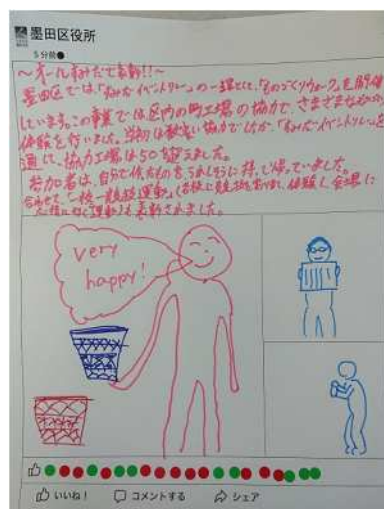 墨田区役所
5分前●
〜オールすみだで表彰!!〜
墨田区では「すみだイベントリレー」の一環として、「ものづくりウォーク」を開催
しています。この事業では区内の町工場の協力で、さまざまな
体験を行いました。当初は数少い協力でしたが、「すみだイベントリレー」を
通じて、協力工場は50を超えました。
参加者は、自分で作ったものをうれしそうに持って帰っていました。
合わせて、「一校一競技運動」(各校に競技を 体験し、会場に
運動)も表彰されました。
very
happy!
いいね!
コメントする
シェア